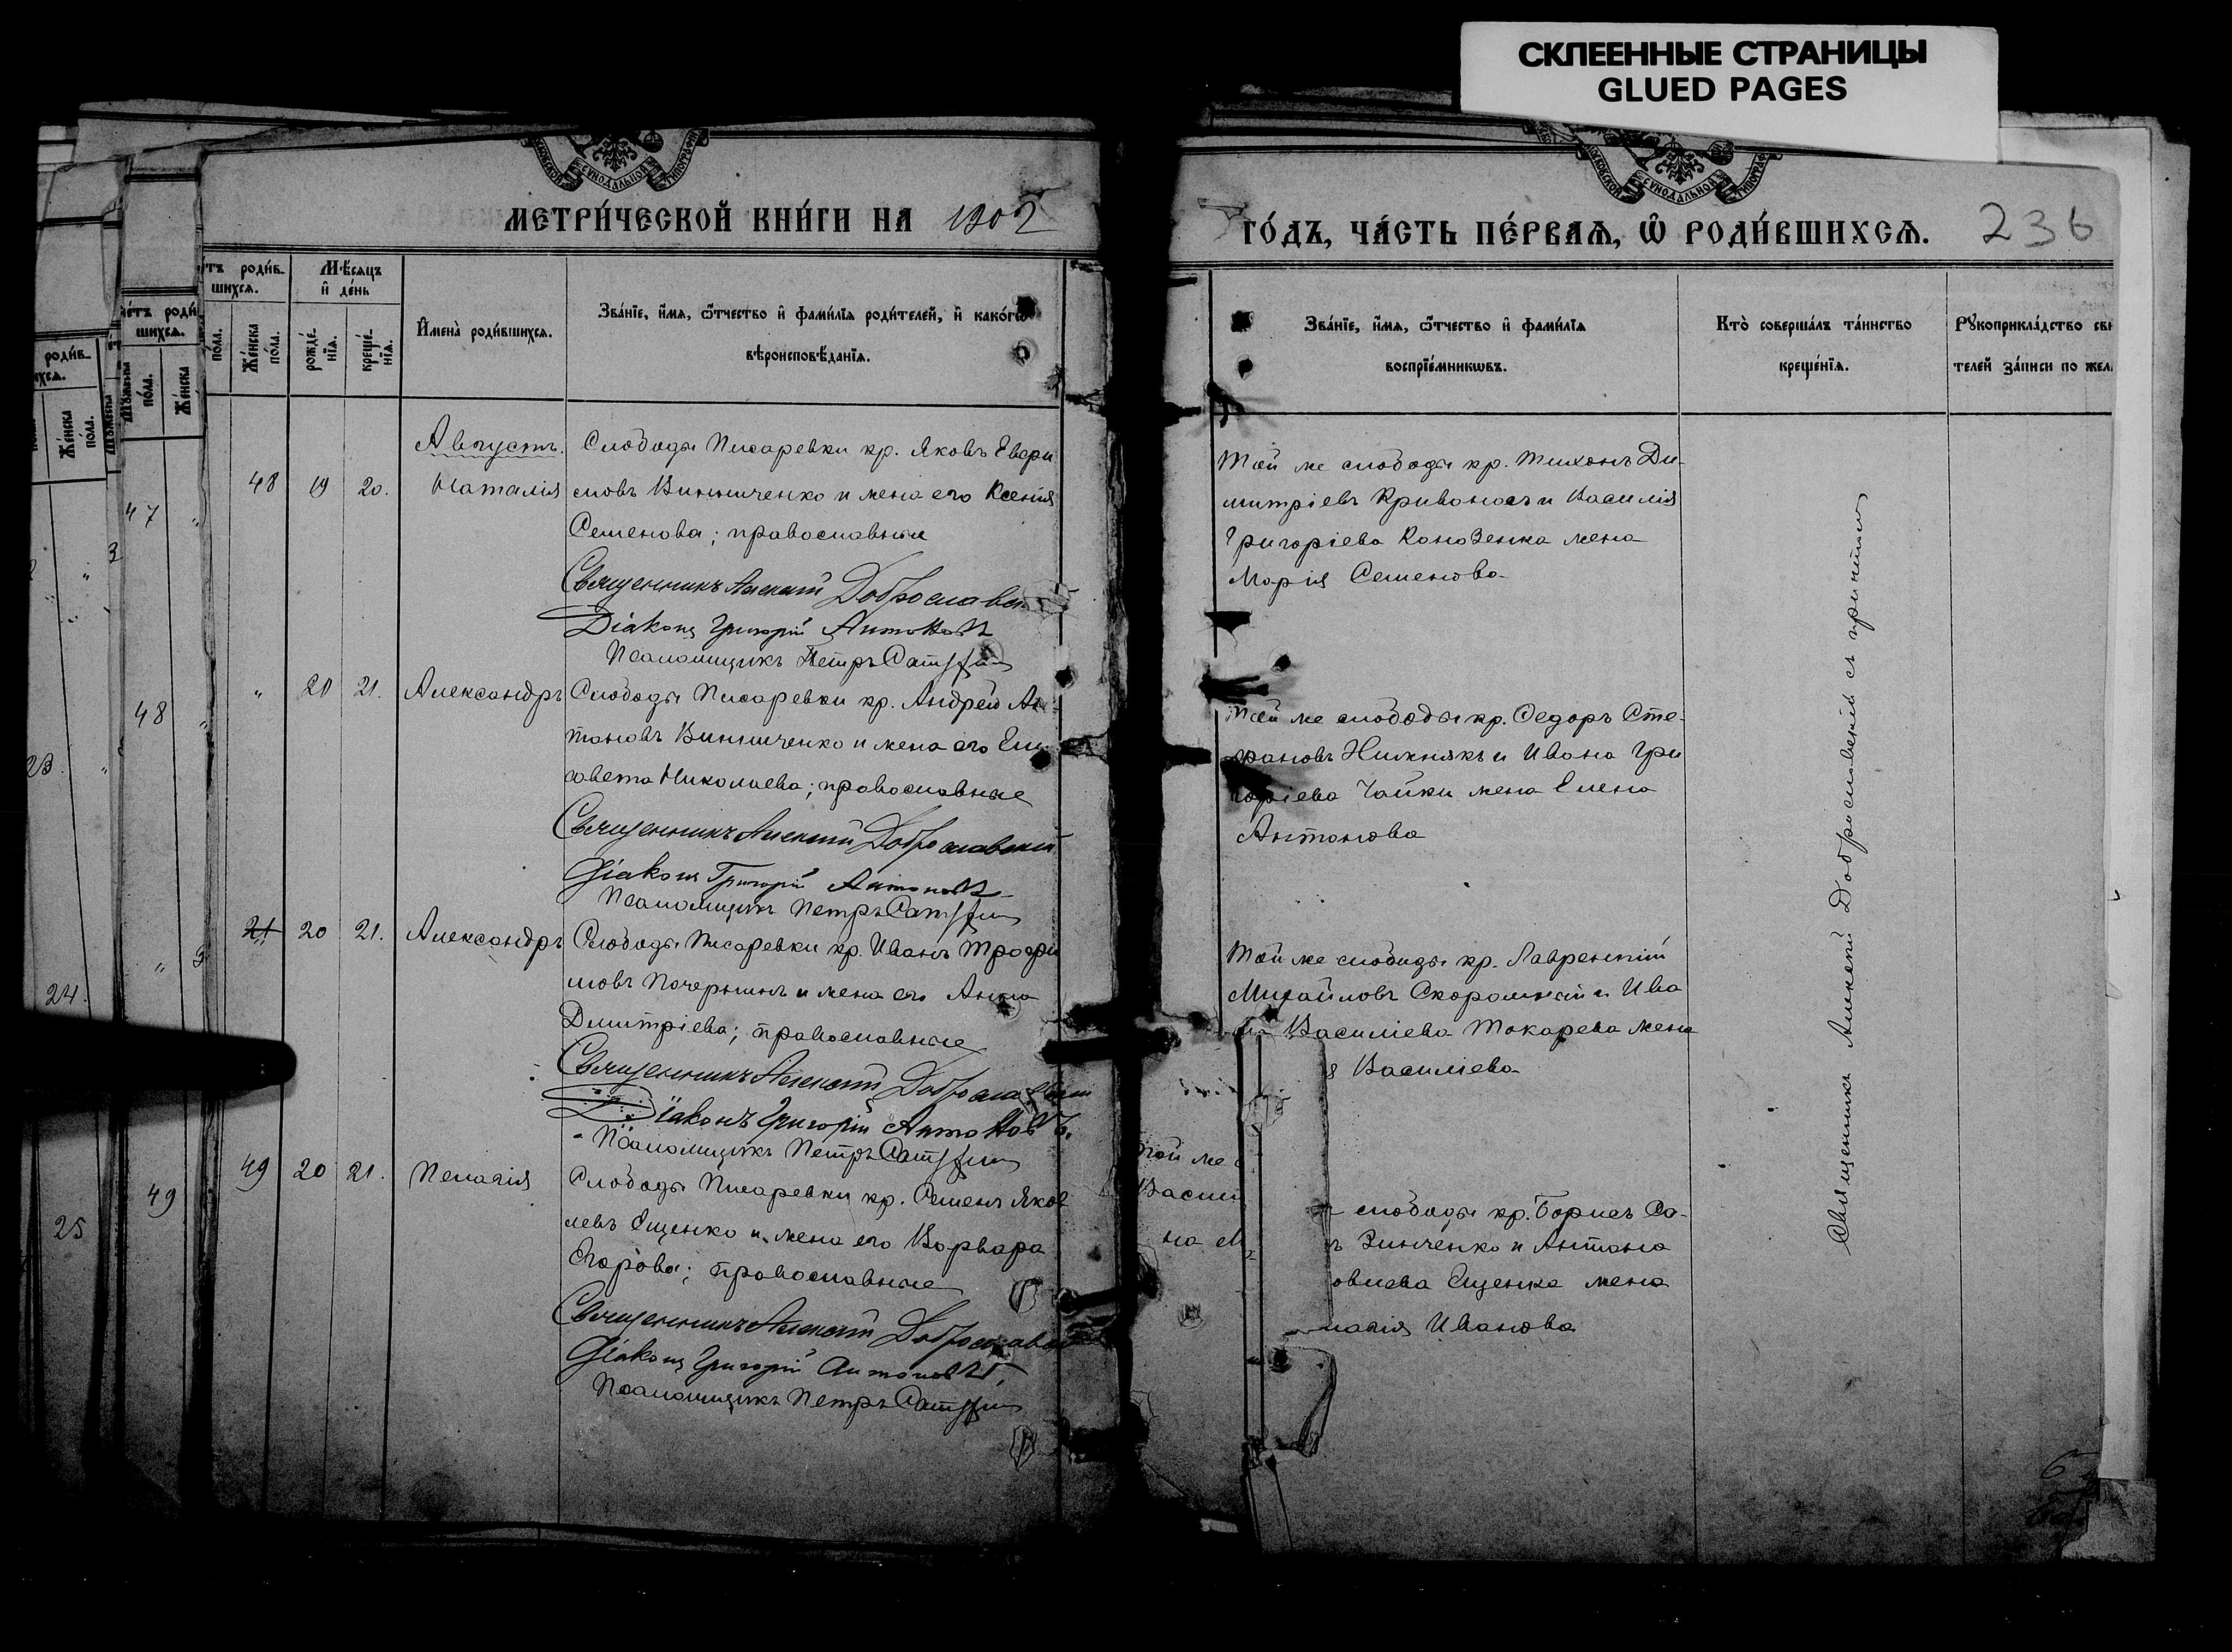 СКЛЕЕННЫЕ СТРАНИЦЫ
GLUED PAGES
МЕТРИ́ЧЕСКОЙ КНИ́ГИ НА 1902
ГО́ДЪ, ЧА́СТЬ ПЕ́РВАѦ, Ѡ РОДИ́ВШИХСѦ. 236
роди́в-
шихсѧ.
Мѣ́сѧцъ
и҆ де́нь
пола.
Же́нска
по́ла.
рожде́-
нїѧ.
креще́-
нїѧ.
И҆мена̀ роди́вшихсѧ.
Зва́нїе, и҆́мѧ, ѻ҆́тчество и҆ фами́лїѧ роди́телей, и҆ како́гѡ
вѣроисповѣ́данїѧ.
Зва́нїе, и҆́мѧ, ѻ҆́тчество и҆ фами́лїѧ
воспрїе́мникѡвъ.
Кто̀ соверша́лъ та́инство
креще́нїѧ.
Рꙋкоприкла́дство
телей за́писи по
Августъ.
48 19 20. Наталія
Слободы Писаревки кр. Яковъ Евфи
мовъ Винниченко и жена его Ксенія
Семенова; православные
Священникъ Алексій Доброславскій
Діаконъ Григорій Антоновъ
Псаломщикъ Петръ
Той же слободы кр. Тихонъ Ди-
митріевъ Кривоносъ и Василія
Григоріева Коновенка жена
Марія Семенова
" 20 21. Александръ
Слободы Писаревки кр. Андрей Ан-
тоновъ Винниченко и жена его Ели-
савета Николаева; православные
Священникъ Алексій Доброславскій
Діаконъ Григорій Антоновъ
Псаломщикъ Петръ
Той же слободы кр. Ѳедоръ Сте-
фановъ Нижнякъ и Ивана Гри
горіева Чайки жена Елена
Антонова
21 20 21. Александръ
Слободы Писаревки кр. Иванъ Трофи
мовъ и жена его Анна
Димитріева; православные
Священникъ Алексій Доброславскій
Діаконъ Григорій Антоновъ.
Псаломщикъ Петръ
Той же слободы кр. Лаврентій
Михайловъ и Ива
Василіева Токарева жена
я Василіева
49 20 21. Пелагія
Слободы Писаревки кр. Семенъ Яков
левъ Ещенко и жена его Варвара
Егорова; православные
Священникъ Алексій Доброславскій
Діаконъ Григорій Антоновъ,
Псаломщикъ Петръ
той же
Васил
на
слободы кр. Борисъ Са-
ъ Зинченко и Антона
овлева Ещенка жена
лагія Иванова
Священникъ Алексій Доброславскій съ причтомъ
47
48
49
23.
24.
25